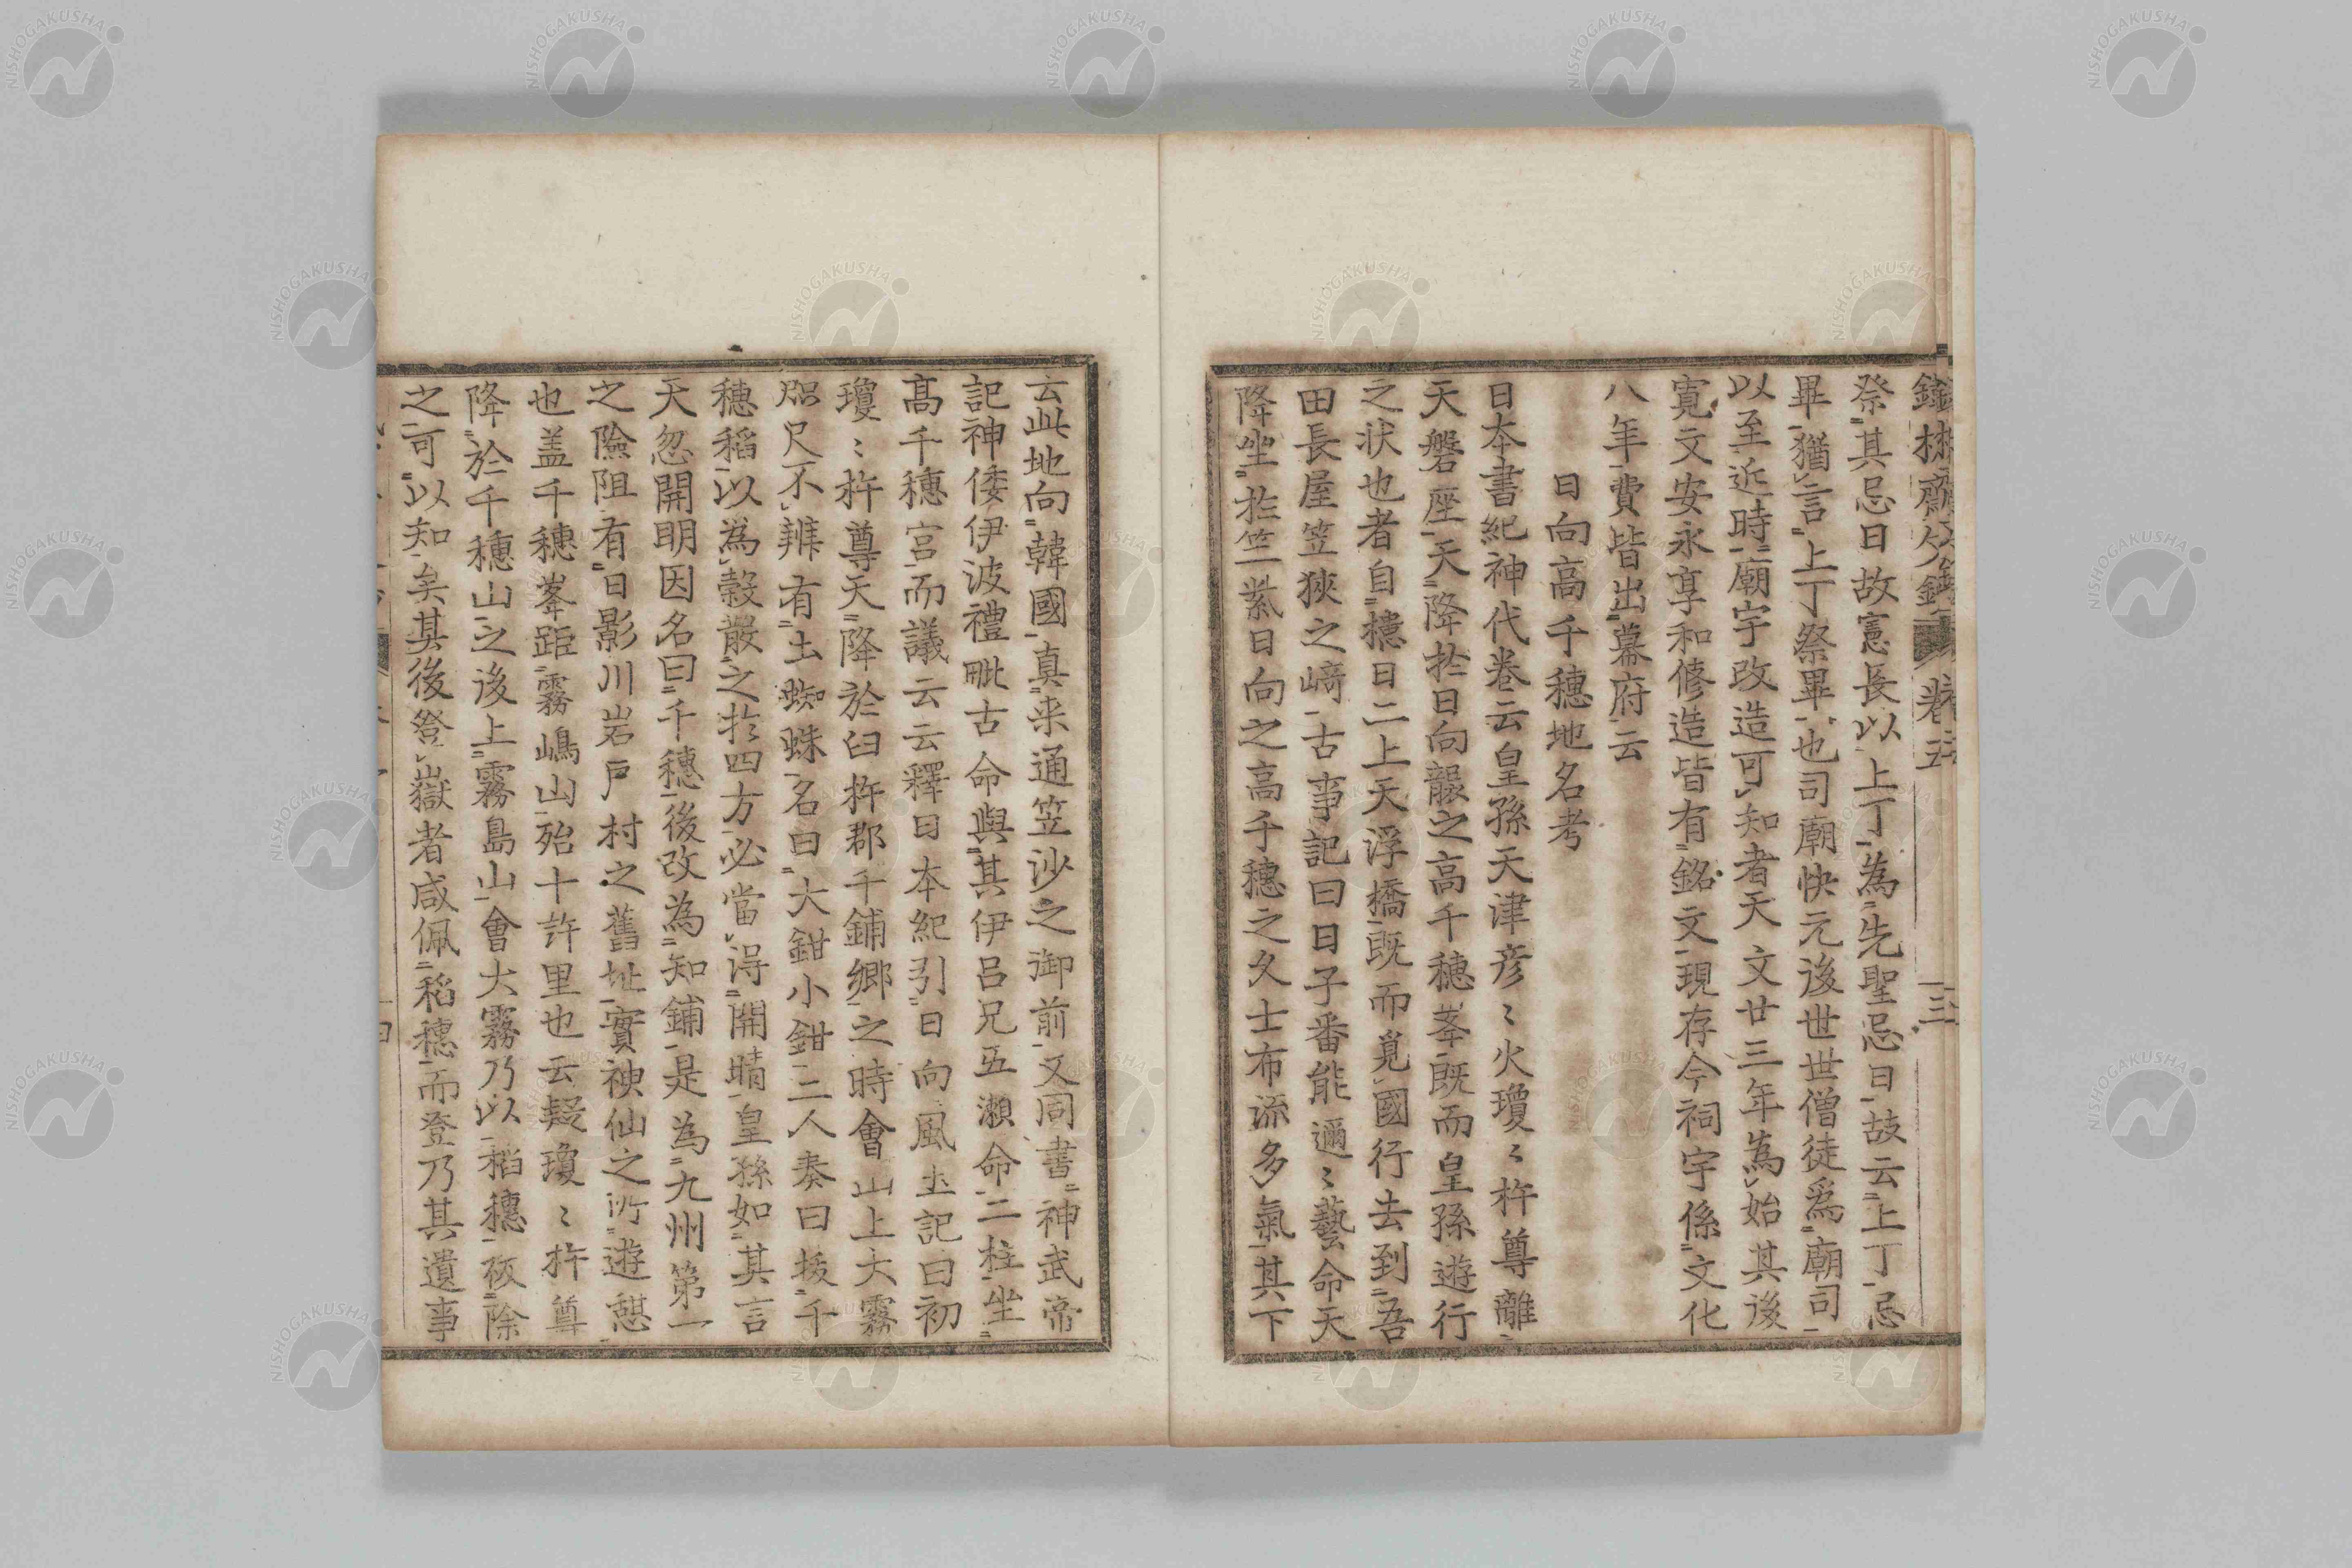 祭其忌日故憲長以上丁為先聖忌日故云上丁忌
畢猶言上丁祭畢也司廟快元後世世僧徒爲廟司
以至近時廟宇改造可知者天文廿三年為始其後
寛文安永享和修造皆有銘文現存今祠宇係文化
八年費皆出幕府云
日向高千穗地名考
日本書紀神代卷云皇孫天津彦〻火瓊〻杵尊離
天磐座天降於日向襲之高千穗峯既而皇孫遊行
之状也者自槵日二上天浮橋既而覓國行去到吾
田長屋笠狹之﨑古事記曰日子番能邇〻藝命天
降坐於竺紫日向之高千穗之久士布流多氣其下
云此地向韓國真来通笠沙之御前又同書神武帝
記神倭伊波禮毗古命與其伊呂兄五瀬命二柱坐
髙千穗宮而議云云釋日本紀引日向風土記曰初
瓊〻杵尊天降於臼杵郡千鋪郷之時會山上大霧
咫尺不辨有土蜘蛛名曰大鉗小鉗二人奏曰拔千
穗稻以為穀散之於四方必當得開晴皇孫如其言
天忽開明因名曰千穗後改為知鋪是為九州第一
之險阻有日影川岩戸村之舊址實神仙之所遊憩
也盖千穗峯距霧嶋山殆十許里也云疑瓊〻杵尊
降於千穗山之後上霧島山會大霧乃以稻穗祓除
之可以知矣其後登嶽者咸佩稻穗而登乃其遺事
卷五
三